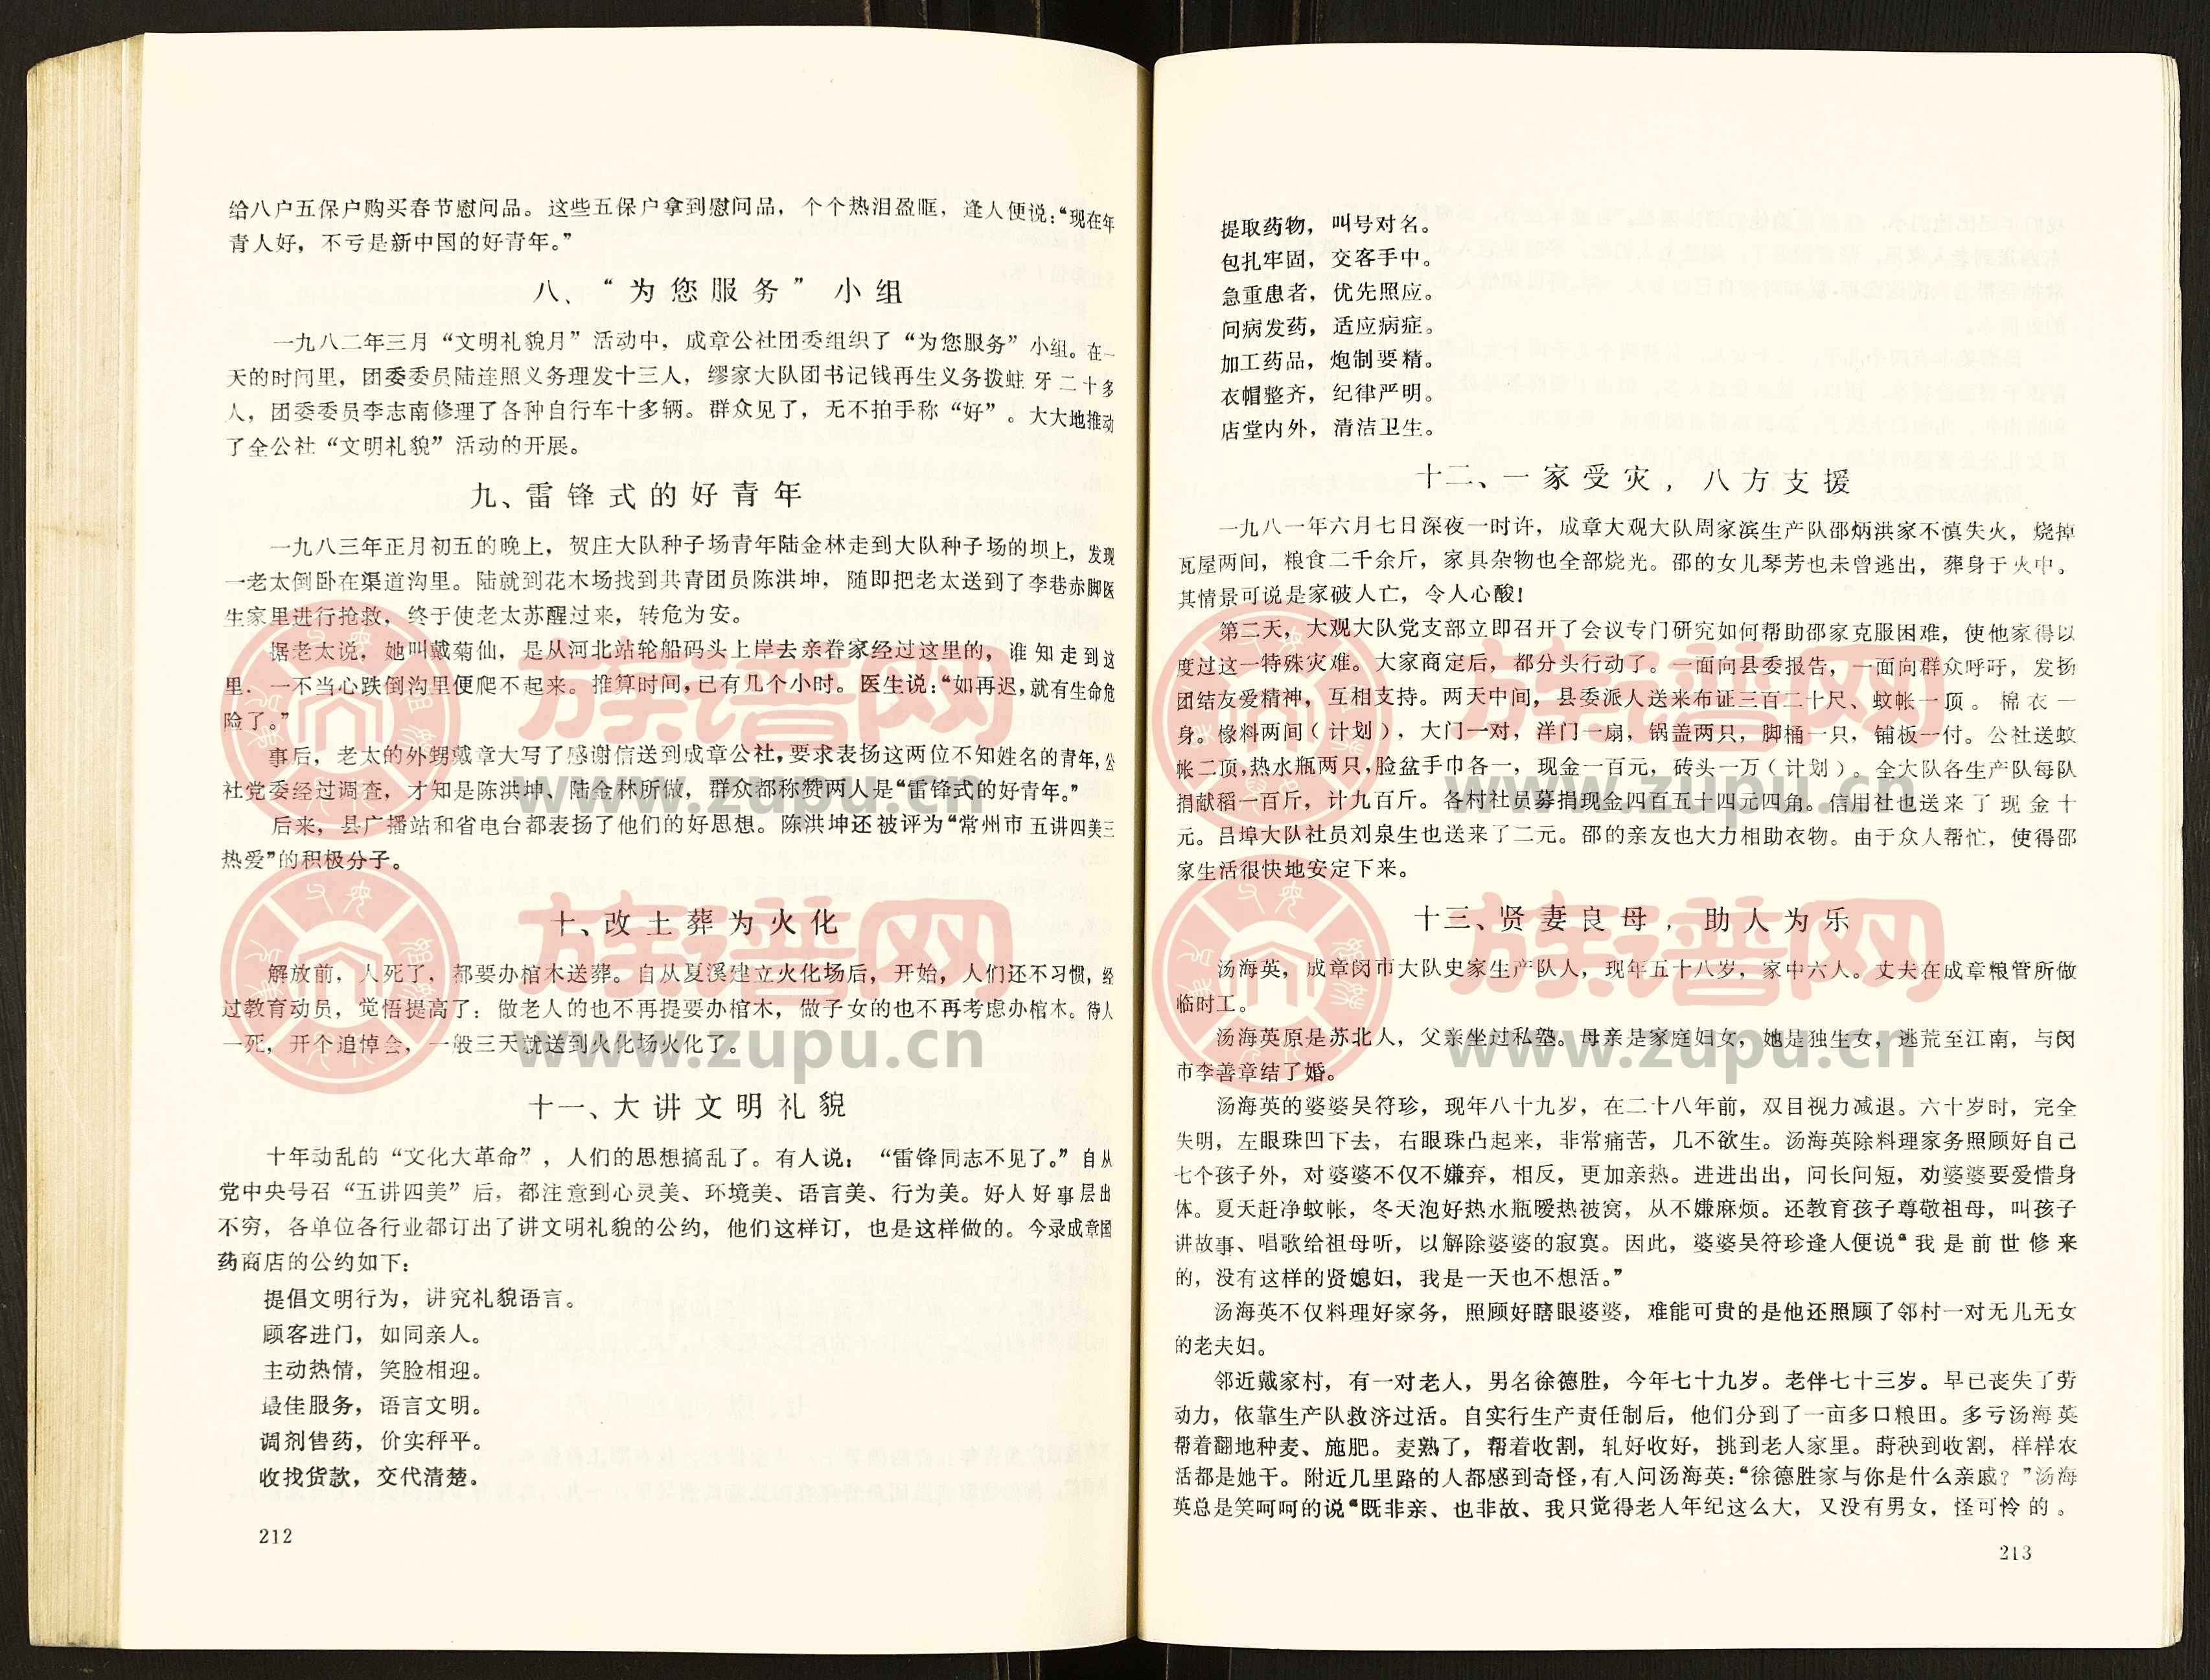 给八户五保户购买春节慰问品。这些五保户拿到慰问品，个个热泪盈眶，逢人便说：“现在年
青人好，不亏是新中国的好青年。”
八、“为您服务”小组
一九八二年三月“文明礼貌月”活动中，成章公社团委组织了“为您服务”小组。在一
天的时间里，团委委员陆连照义务理发十三人，缪家大队团书记钱再生义务拨蛀牙二十多
人，团委委员李志南修理了各种自行车十多辆。群众见了，无不拍手称“好”。大大地推动
了全公社“文明礼貌”活动的开展。
九、雷锋式的好青年
一九八三年正月初五的晚上，贺庄大队种子场青年陆金林走到大队种子场的坝上，发现
一老太倒卧在渠道沟里。陆就到花木场找到共青团员陈洪坤，随即把老太送到了李巷赤脚医
生家里进行抢救，终于使老太苏醒过来，转危为安。
据老太说，她叫戴菊仙，是从河北站轮船码头上岸去亲眷家经过这里的，谁知走到这
里．一不当心跌倒沟里便爬不起来。推算时间，已有几个小时。医生说：“如再迟，就有生命危
险了。”
事后，老太的外甥戴章大写了感谢信送到成章公社，要求表扬这两位不知姓名的青年，公
社党委经过调查，才知是陈洪坤、陆金林所做，群众都称赞两人是“雷锋式的好青年。”
后来，县广播站和省电台都表扬了他们的好思想。陈洪坤还被评为“常州市五讲四美三
热爱”的积极分子。
十、改土葬为火化
解放前，人死了，都要办棺木送葬。自从夏溪建立火化场后，开始，人们还不习惯，经
过教育动员，觉悟提高了：做老人的也不再提要办棺木，做子女的也不再考虑办棺木。待人
一死，开个追悼会，一般三天就送到火化场火化了。
十一、大讲文明礼貌
十年动乱的“文化大革命”，人们的思想搞乱了。有人说：“雷锋同志不见了。”自从
党中央号召“五讲四美”后，都注意到心灵美、环境美、语言美、行为美。好人好事层出
不穷，各单位各行业都订出了讲文明礼貌的公约，他们这样订，也是这样做的。今录成章国
药商店的公约如下：
提倡文明行为，讲究礼貌语言。
顾客进门，如同亲人。
主动热情，笑脸相迎。
最佳服务，语言文明。
调剂售药，价实秤平。
收找货款，交代清楚。
212
提取药物，叫号对名。
包扎牢固，交客手中。
急重患者，优先照应。
问病发药，适应病症。
加工药品，炮制要精。
衣帽整齐，纪律严明。
店堂内外，清洁卫生。
十二、一家受灾，八方支援
一九八一年六月七日深夜一时许，成章大观大队周家滨生产队邵炳洪家不慎失火，烧掉
瓦屋两间，粮食二千余斤，家具杂物也全部烧光。邵的女儿琴芳也未曾逃出，葬身于火中。
其情景可说是家破人亡，令人心酸！
第二天，大观大队党支部立即召开了会议专门研究如何帮助邵家克服困难，使他家得以
度过这一特殊灾难。大家商定后，都分头行动了。一面向县委报告，一面向群众呼吁，发扬
团结友爱精神，互相支持。两天中间，县委派人送来布证三百二十尺、蚊帐一顶。棉衣一
身。椽料两间（计划），大门一对，洋门一扇，锅盖两只，脚桶一只，铺板一付。公社送蚊
帐二顶，热水瓶两只，脸盆手巾各一，现金一百元，砖头一万（计划）。全大队各生产队每队
捐献稻一百斤，计九百斤。各村社员募捐现金四百五十四元四角。信用社也送来了现金十
元。吕埠大队社员刘泉生也送来了二元。邵的亲友也大力相助衣物。由于众人帮忙，使得邵
家生活很快地安定下来。
十三、贤妻良母，助人为乐
汤海英，成章闵市大队史家生产队人，现年五十八岁，家中六人。丈夫在成章粮管所做
临时工。
汤海英原是苏北人，父亲坐过私塾。母亲是家庭妇女，她是独生女，逃荒至江南，与闵
市李善章结了婚。
汤海英的婆婆吴符珍，现年八十九岁，在二十八年前，双目视力减退。六十岁时，完全
失明，左眼珠凹下去，右眼珠凸起来，非常痛苦，几不欲生。汤海英除料理家务照顾好自己
七个孩子外，对婆婆不仅不嫌弃，相反，更加亲热。进进出出，问长问短，劝婆婆要爱惜身
体。夏天赶净蚊帐，冬天泡好热水瓶暖热被窝，从不嫌麻烦。还教育孩子尊敬祖母，叫孩子
讲故事、唱歌给祖母听，以解除婆婆的寂寞。因此，婆婆吴符珍逢人便说“我是前世修来
的，没有这样的贤媳妇，我是一天也不想活。”
汤海英不仅料理好家务，照顾好瞎眼婆婆，难能可贵的是他还照顾了邻村一对无儿无女
的老夫妇。
邻近戴家村，有一对老人，男名徐德胜，今年七十九岁。老伴七十三岁。早已丧失了劳
动力，依靠生产队救济过活。自实行生产责任制后，他们分到了一亩多口粮田。多亏汤海英
帮着翻地种麦、施肥。麦熟了，帮着收割，轧好收好，挑到老人家里。莳秧到收割，样样农
活都是她干。附近几里路的人都感到奇怪，有人问汤海英：“徐德胜家与你是什么亲戚？”汤海
英总是笑呵呵的说“既非亲、也非故、我只觉得老人年纪这么大，又没有男女，怪可怜的。
213
族谱网
www.zupu.cn
族谱网
www.zupu.cn
族谱网
www.zupu.cn
族谱网
www.zupu.cn